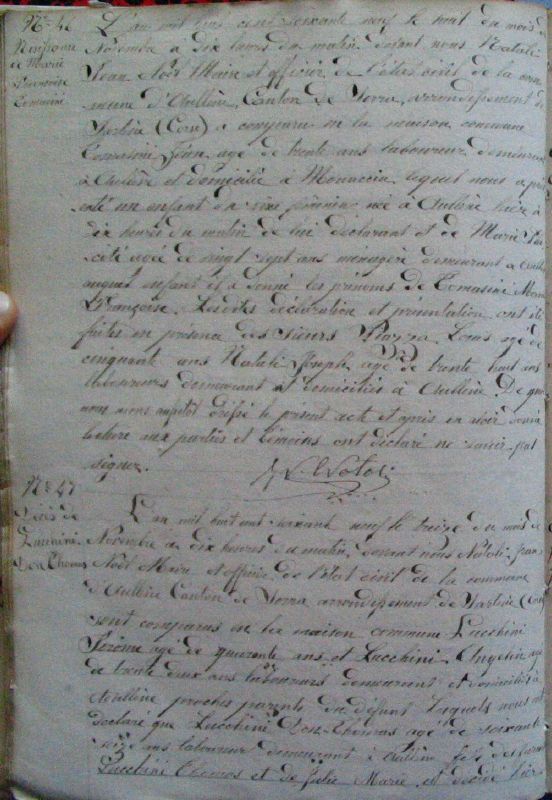 N° 46
Naissance
de Marie
Françoise
Tomasini
L'an mil huit cent soixante neuf le huit du mois de
Novembre à dix heures du matin, devant nous Natali
Jean Noël Maire et officier de l'état civil de la com
mune d'Aullène, Canton de Serra, arrondissement de
Sartène (Corse) a comparu en la maison commune
Tomasini Jean agé de trente ans laboureur demeurant
à Aullène et domicilié à Monaccia lequel nous a pré
senté un enfant du sexe féminin née à Aullène hier à
dix heures du matin de lui déclarant et de Marie
agée de vingt sept ans menagère demeurant à
auquel enfant il a donné les prénoms de Tomasini Marie
Françoise. Lesdites déclaration et présentation ont été
faites en présence des sieurs Piazza Louis agé de
cinquante ans Natali Joseph agé de trente huit ans
laboureurs demeurant et domiciliés à Aullène. De quoi
nous avons aussitot dressé le present acte et après en avoir donné
lecture aux parties et témoins ont déclaré ne savoir pas
signer.
N° 47
Décès de
Lucchini
Don Thomas
L'an mil huit cent soixante neuf le treize du mois de
Novembre à dix heures du matin, devant nous Natali Jean
Noël Maire et officier de l'état civil de la commune
d'Aullène Canton de Serra arrondissement de Sartène (Corse)
sont comparus en la maison commune Lucchini
Jérôme agé de quarante ans et Lucchini Angelin agé
de trente deux ans laboureurs demeurant et domiciliés à
Aullène proches parents du defunt Lesquels nous ont
declaré que Lucchini Don Thomas agé de soixante
seize ans laboureur demeurant à Aullène fils des furent
Lucchini Thomas et de Julie Marie est décédé hier